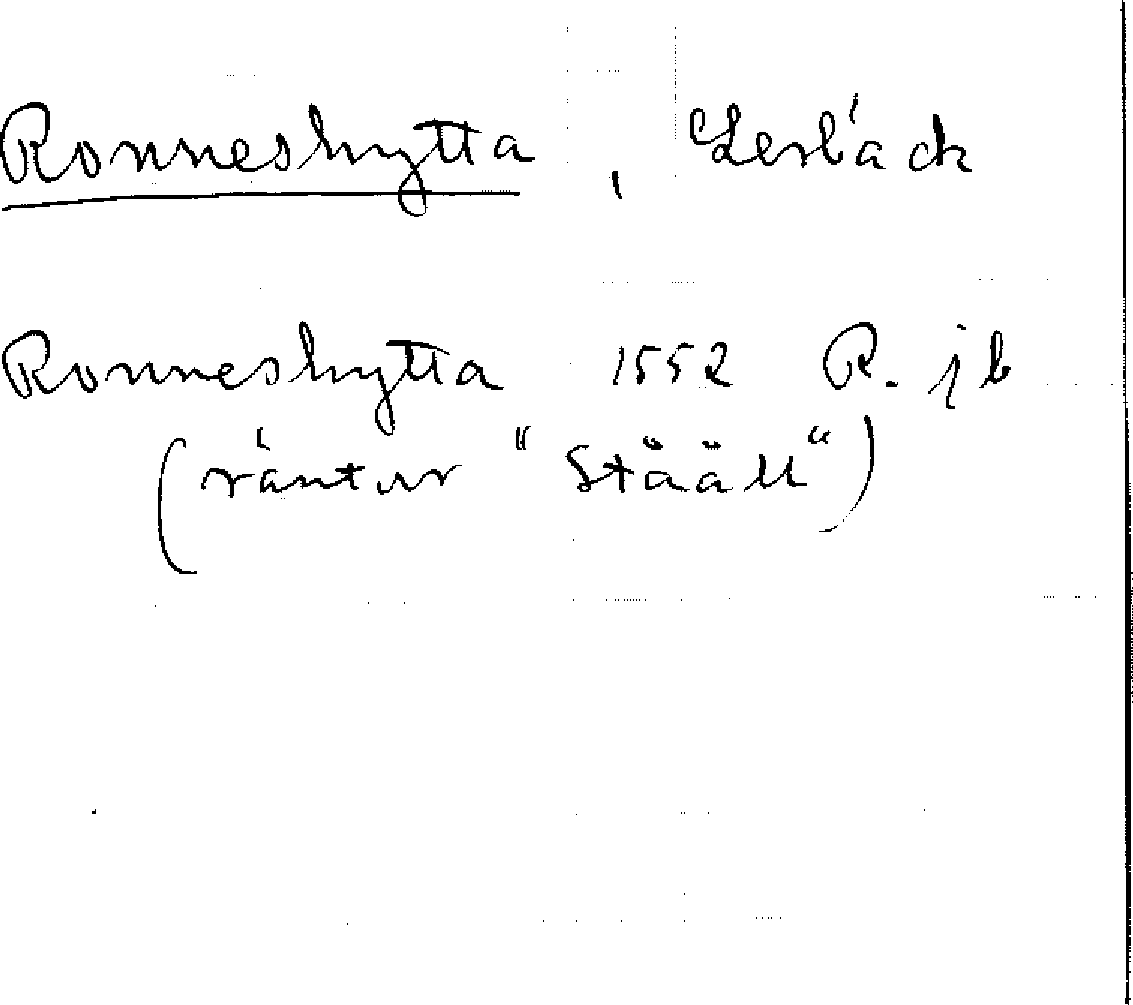 Ronneshytta , Lerbäck
Ronneshytta 1552 R. jb
(räntar " Stååll")